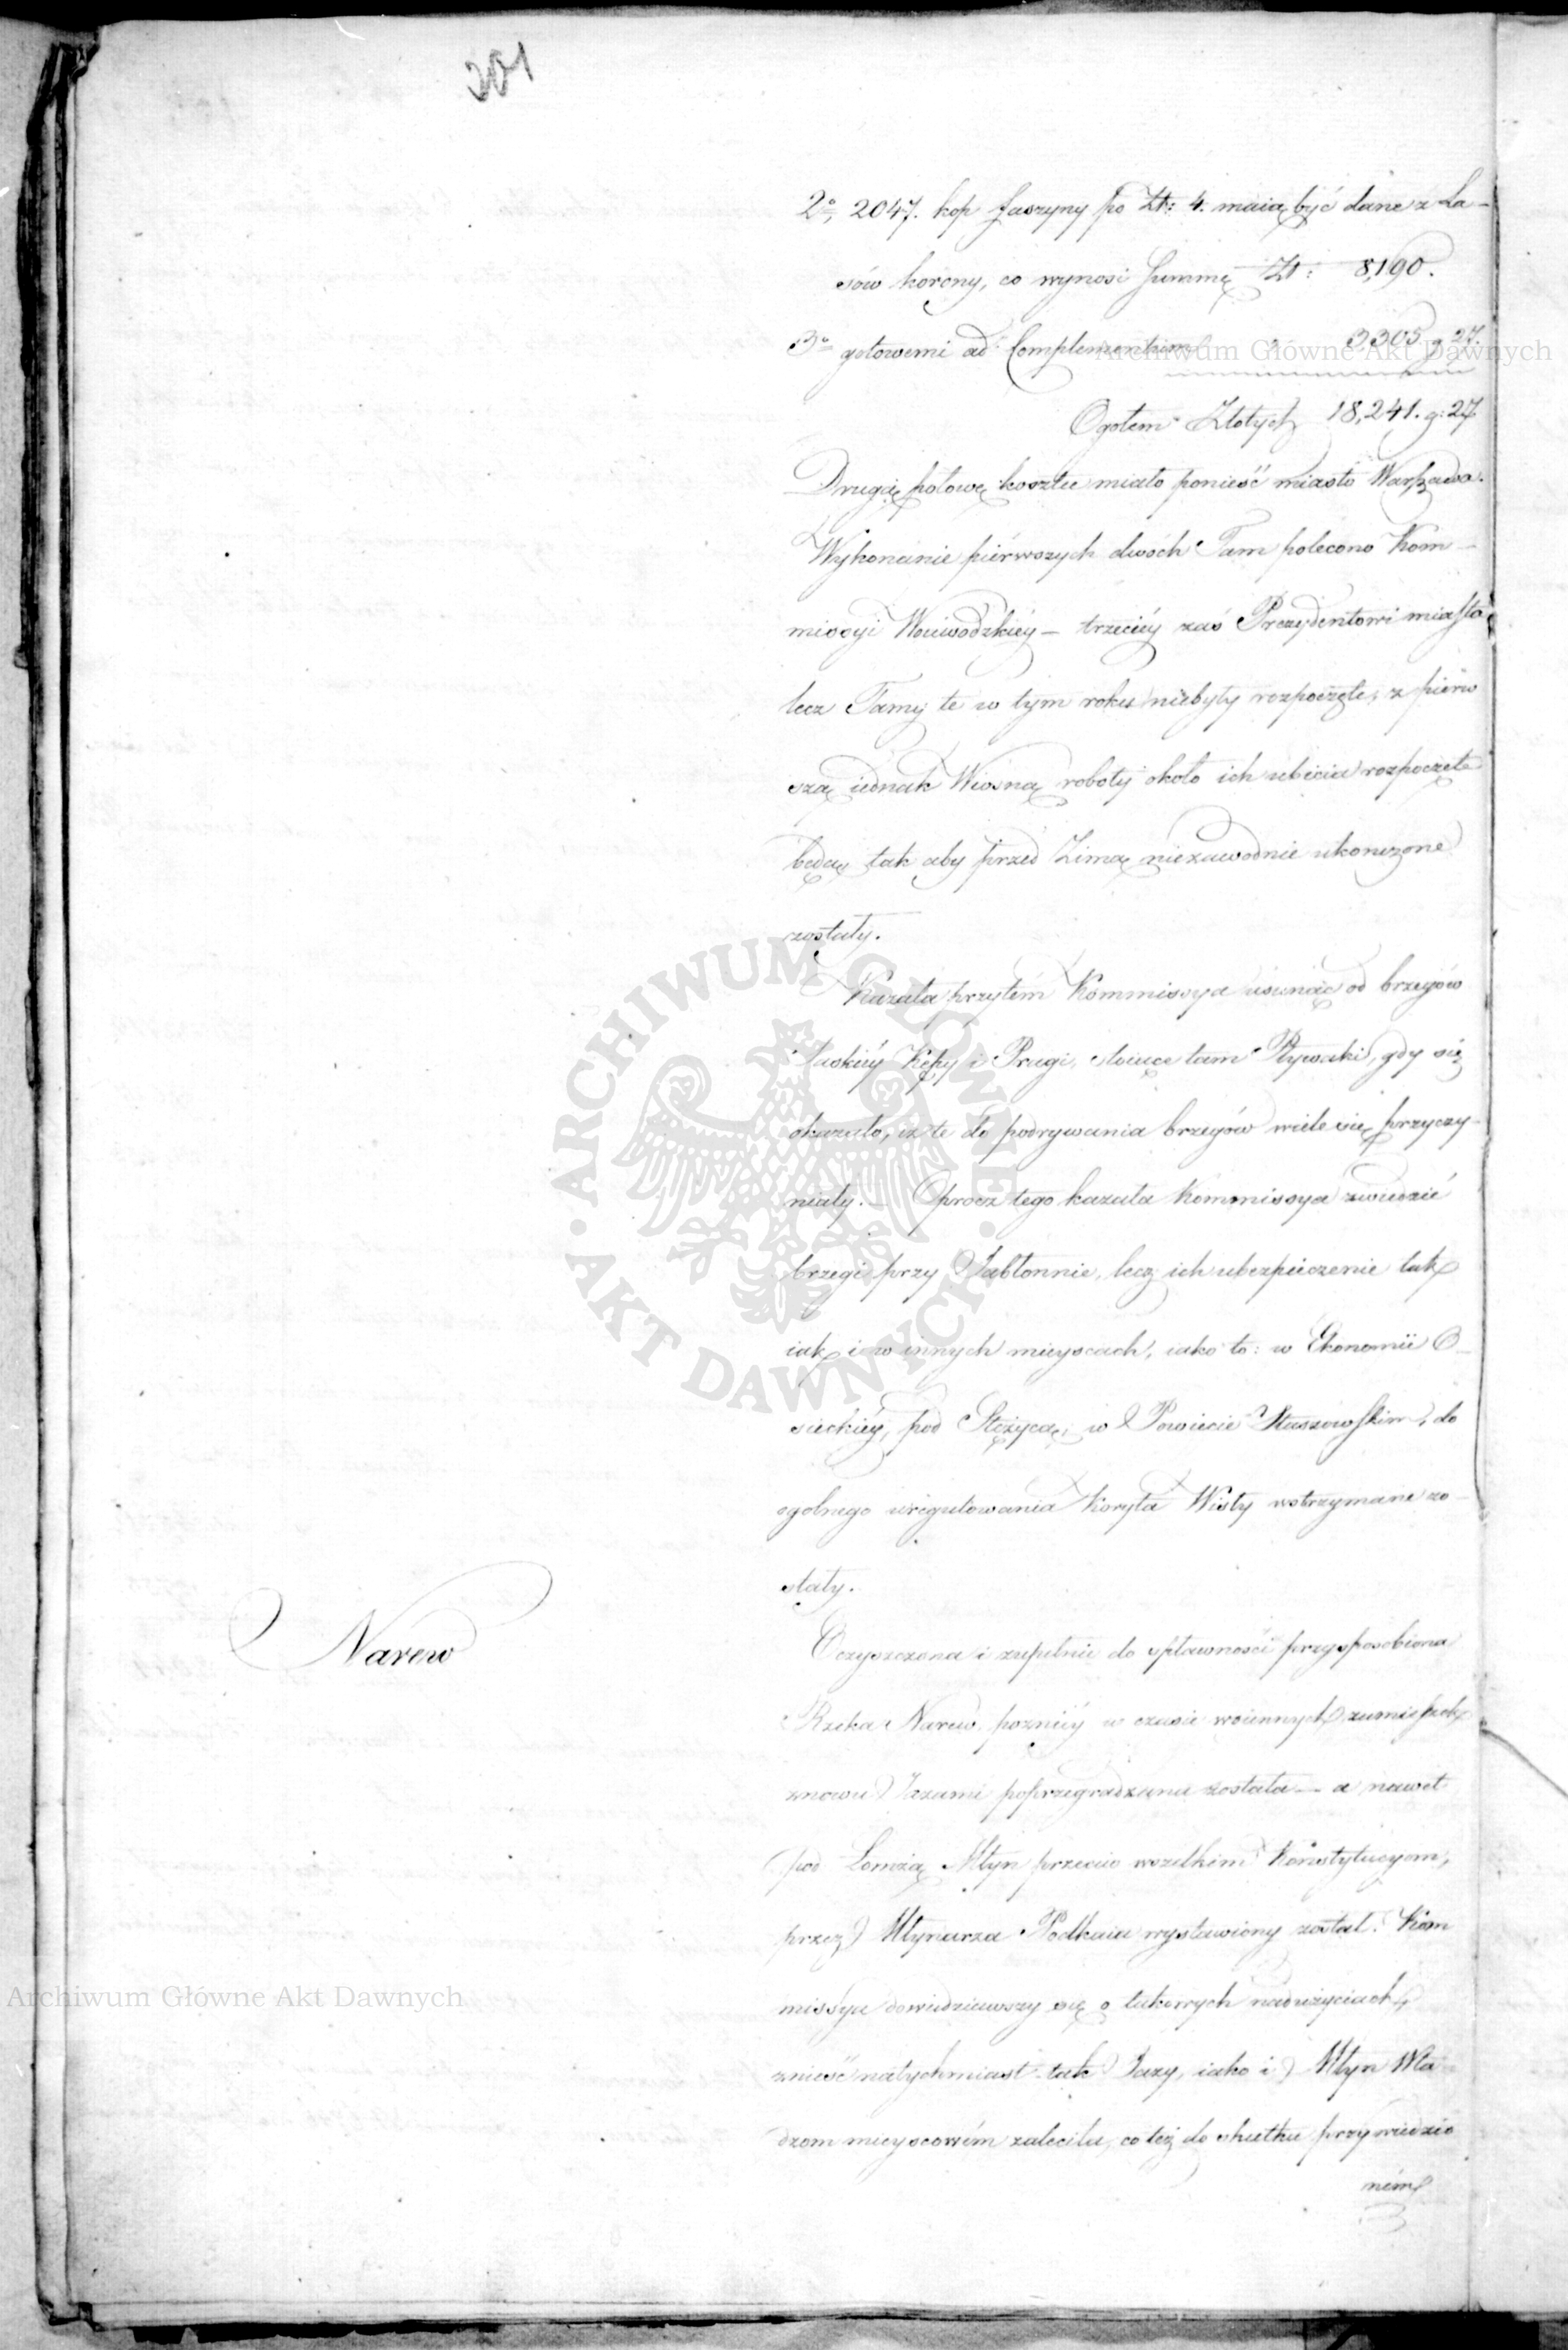 201
2o, 2047. kop faszyny po Zł: 4. maią być dane z La-
sów korony, co wynosi Summę Zł: 8,190.
3o gotowemi ad Complementum 3305 g 27.
Ogołem Złotych 18,241. g: 27
Drugą połowę kosztu miało ponieść miasto Warszawa.
Wykonanie piérwszych dwóch Tam polecono Kom-
missyi Woiewódzkiéy — trzeciéy zaś Prezydentowi miasta,
lecz Tamy te w tym roku niebyły rozpoczęte, z pierw
szą iednak Wiosną roboty około ich ubicia rozpoczęte
będą, tak aby przed Zimą niezawodnie ukonczone
zostały.
Kazała przytém Kommissya usunąć od brzegów
Saskiéy Kępy i Pragi, stoiące tam Pływaki, gdy się
okazało, iż te do podrywania brzegów wiele się przyczy-
niały. — Oprocz tego kazała Kommissya zwiedzić
brzegi przy Jabłonnie, lecz ich ubezpieczenie tak
iak i w innych mieyscach, iako to: w Ekonomii O-
sieckiéy, pod Stężycą, w Powiecie Staszowskim, do
ogolnego uregulowania Koryta Wisły wstrzymane zo-
stały.
Narew
Oczyszczona i zupełnie do spławności przysposobiona
Rzeka Narew, pozniéy w czasie woiennych zamieszek
znowu Jazami poprzegradzana została — a nawet
pod Łomżą Młyn przeciw wszelkim Konstytucyom,
przez Młynarza wystawiony został. Kom
missya dowiedziawszy się o takowych nadużyciach,
znieść natychmiast tak Jazy, iako i Młyn Wła
dzom mieyscowém zaleciła, co też do skutku przywiedzio
ném
Archiwum Główne Akt Dawnych
Archiwum Główne Akt Dawnych
ARCHIWUM GŁÓWNE AKT DAWNYCH